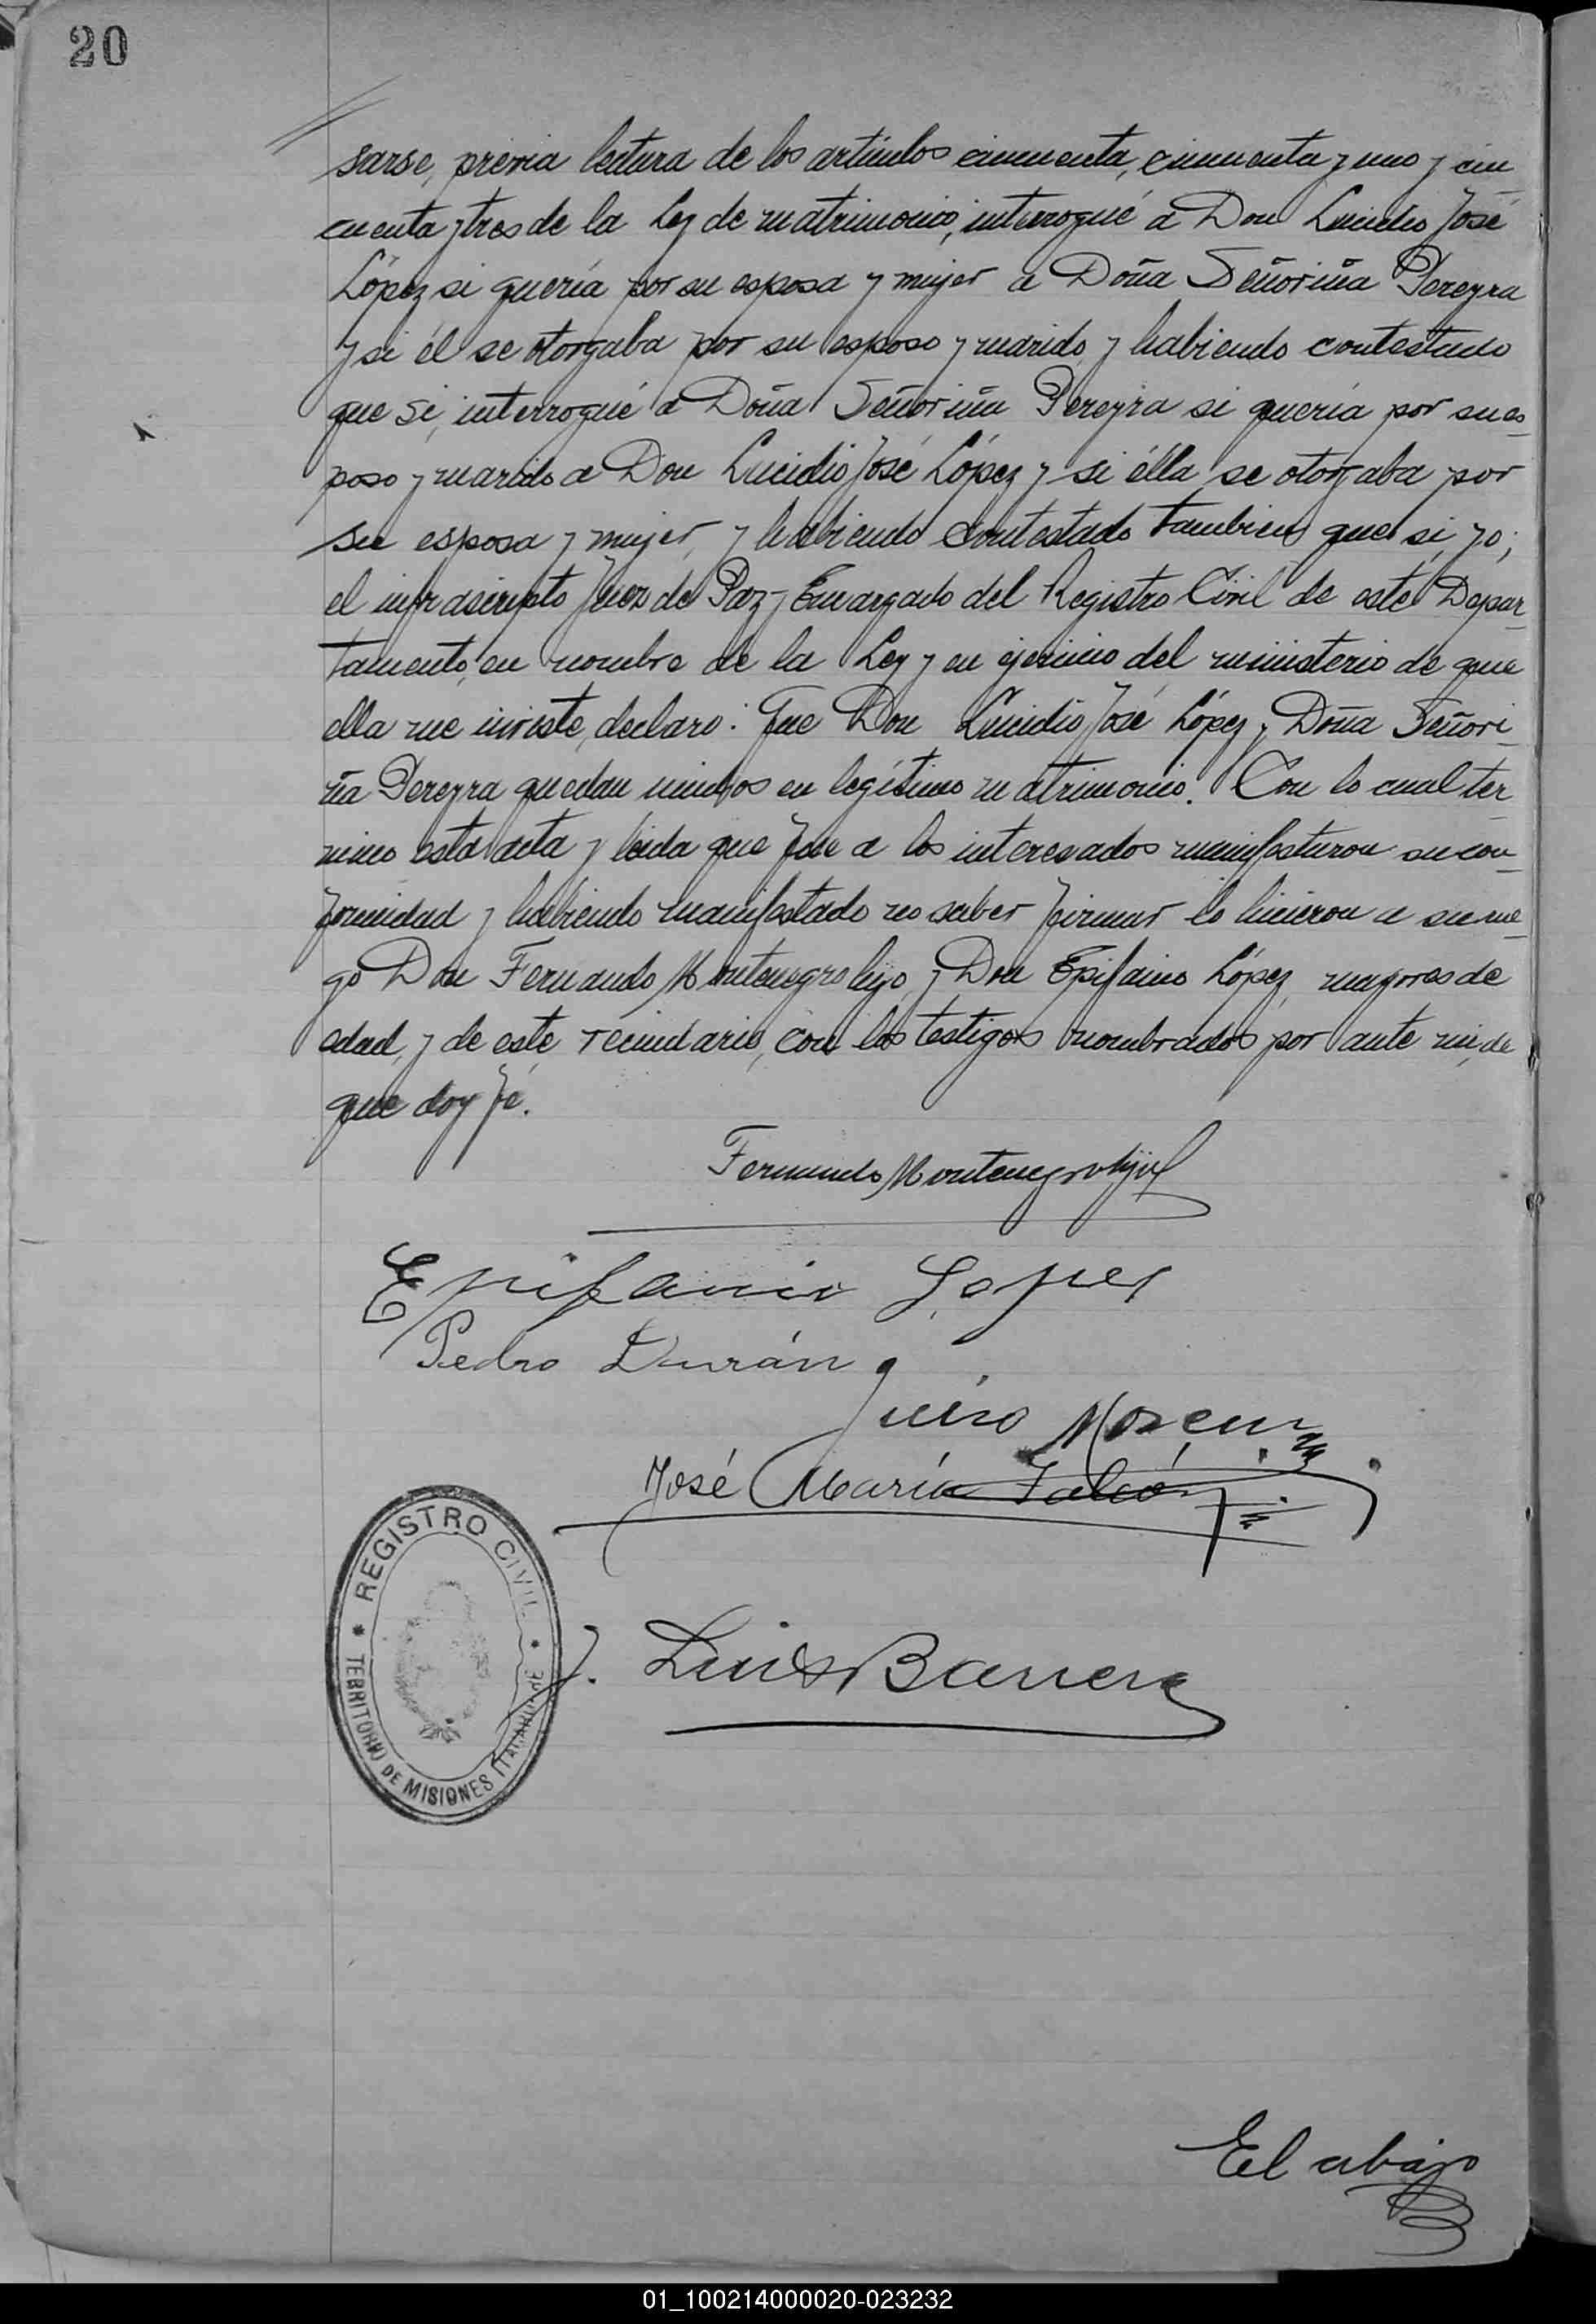 20
sarse, previa lectura de los artículos cincuenta, cincuenta y uno y cin
cuenta y tres de la Ley de matrimonio, interrogué á Don Lucidio José
López si quería por su esposa y mujer a Doña Señoriña Pereyra
y si él se otorgaba por su esposo y marido, y habiendo contestado
que si, interrogué a Doña Señoriña Pereyra si quería por su es-
poso y marido a Don Lucidio José López y si élla se otorgaba por
su esposa y mujer, y habiendo contestado tambien que si, yo;
el infrascripto Juez de Paz y Encargado del Registro Civil de este Depar-
tamento, en nombre de la Ley y en ejercicio del ministerio de que
ella me inviste, declaro: Que Don Lucidio José López y Doña Señori-
ña Pereyra quedan unidos en legítimo matrimonio. Con lo cual ter
mino esta acta y leida que fue a los interesados manifestaron su con-
formidad y habiendo manifestado no saber firmar lo hicieron a su rue-
go Don Fernando Montenegro hijo, y Don Epifanio López, mayores de
edad, y de este vecindario, con los testigos nombrados por ante mi, de
que doy fé.
Fernando Montenegro hijo
Epifanio Lopez
Pedro Durán
Moreno
José María Falcón
J. Luis Barrera
REGISTRO CIVIL
TERRITORIO DE MISIONES
El abajo
01_100214000020-023232